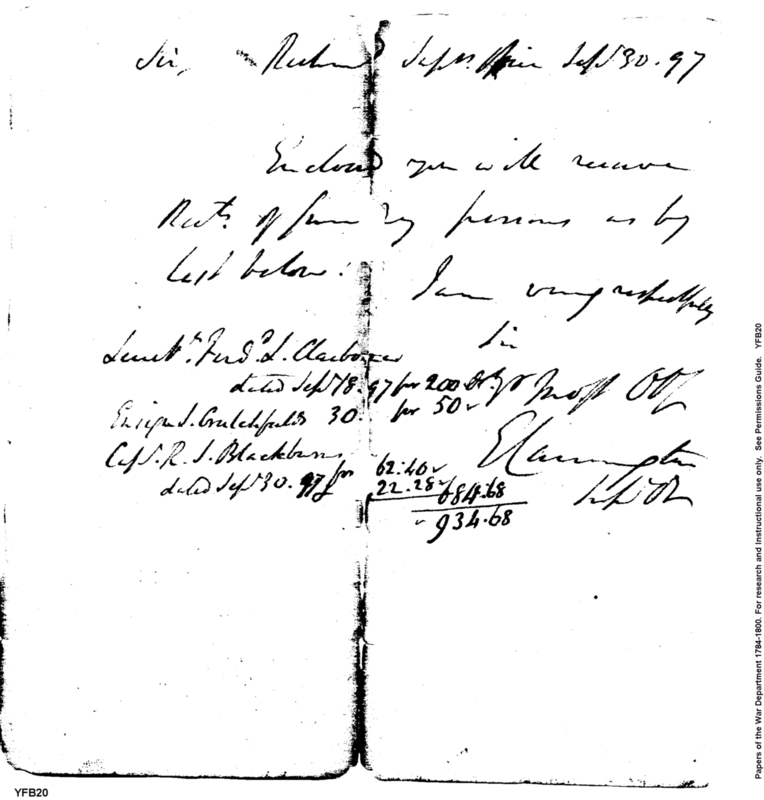 Sir, Richmd Supvrs. Office Septr 30. 97
Enclosed you will receive
Rects. of sundry persons as by
list below.
I am very respectfully
Sir
Yr Most Ob
Lieutt. Ferdd. L. Claiborne
dated Sept 18. 97 for 200 Drs
Ensign J. Crutchfields 30. for 50
Capt. R. S. Blackburns
dated Sept 30. 97 for 62:40
22.28 684.68
934.68
E Carrington
YFB20
Papers of the War Department 1784-1800. For research and Instructional use only. See Permissions Guide. YFB20